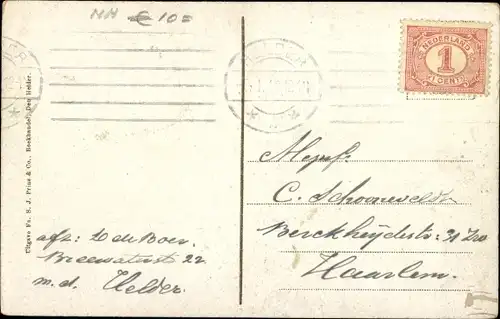 MM € 10=
HELDER
NEDERLAND
1
1 CENT
Uitgave Fa. B. J. Prins & Co., Boekhandel, Den Helder.
C. Schooneveldt
Berckheydestr: 31 Zw
Haarlem.
afz: L de Boer.
Breewaterstr 22
m.d. Helder.